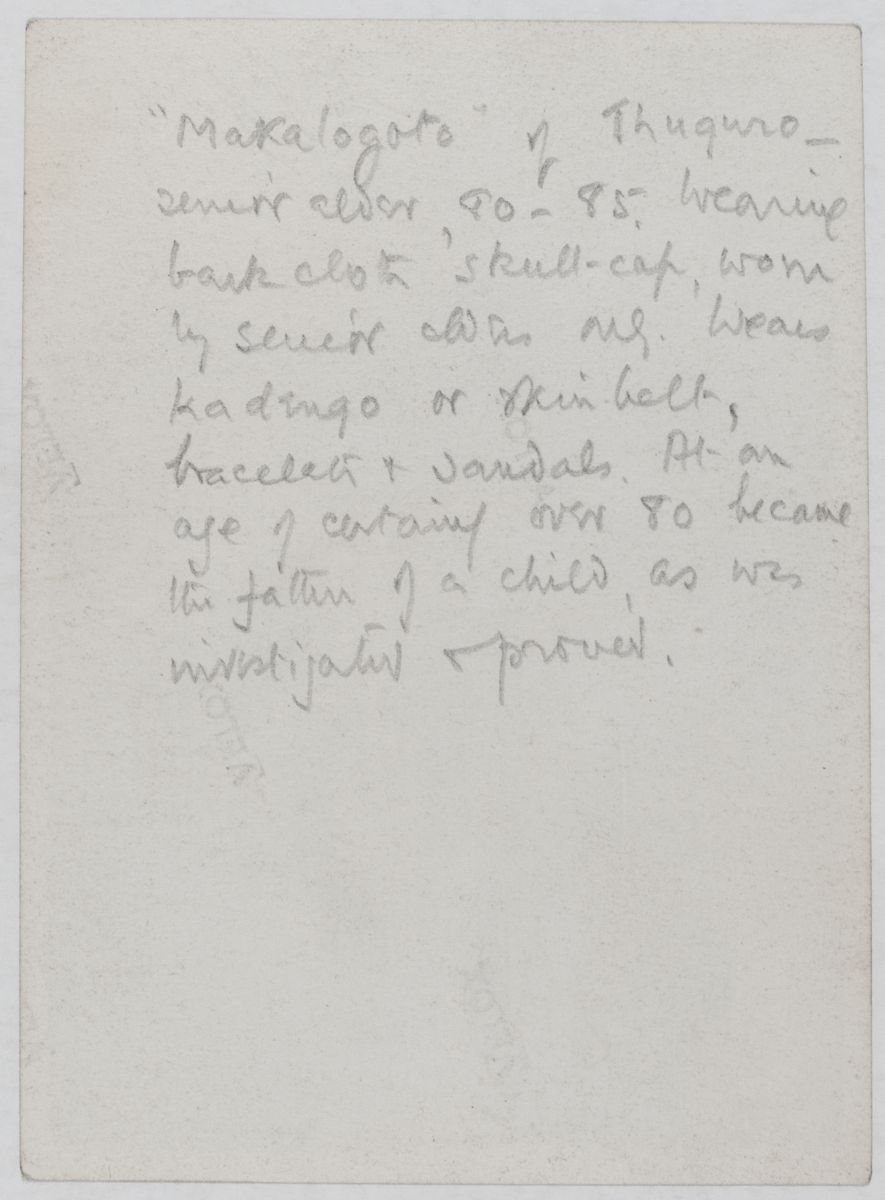 "Makalogoto" of Thuquro —
senior elder, 80 - 85. Wearing
bark cloth skull-cap, worn
by senior elders only. Wears
kadengo or skin belt,
bracelets + sandals. At an
age of certainly over 80 became
the father of a child, as was
investigated & proved.